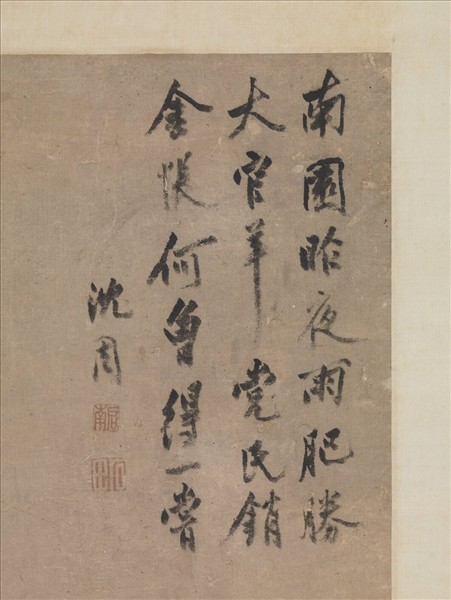 南園昨夜雨肥勝
大官羊党氏銷
金帳何曾得一嘗
沈周
啟南